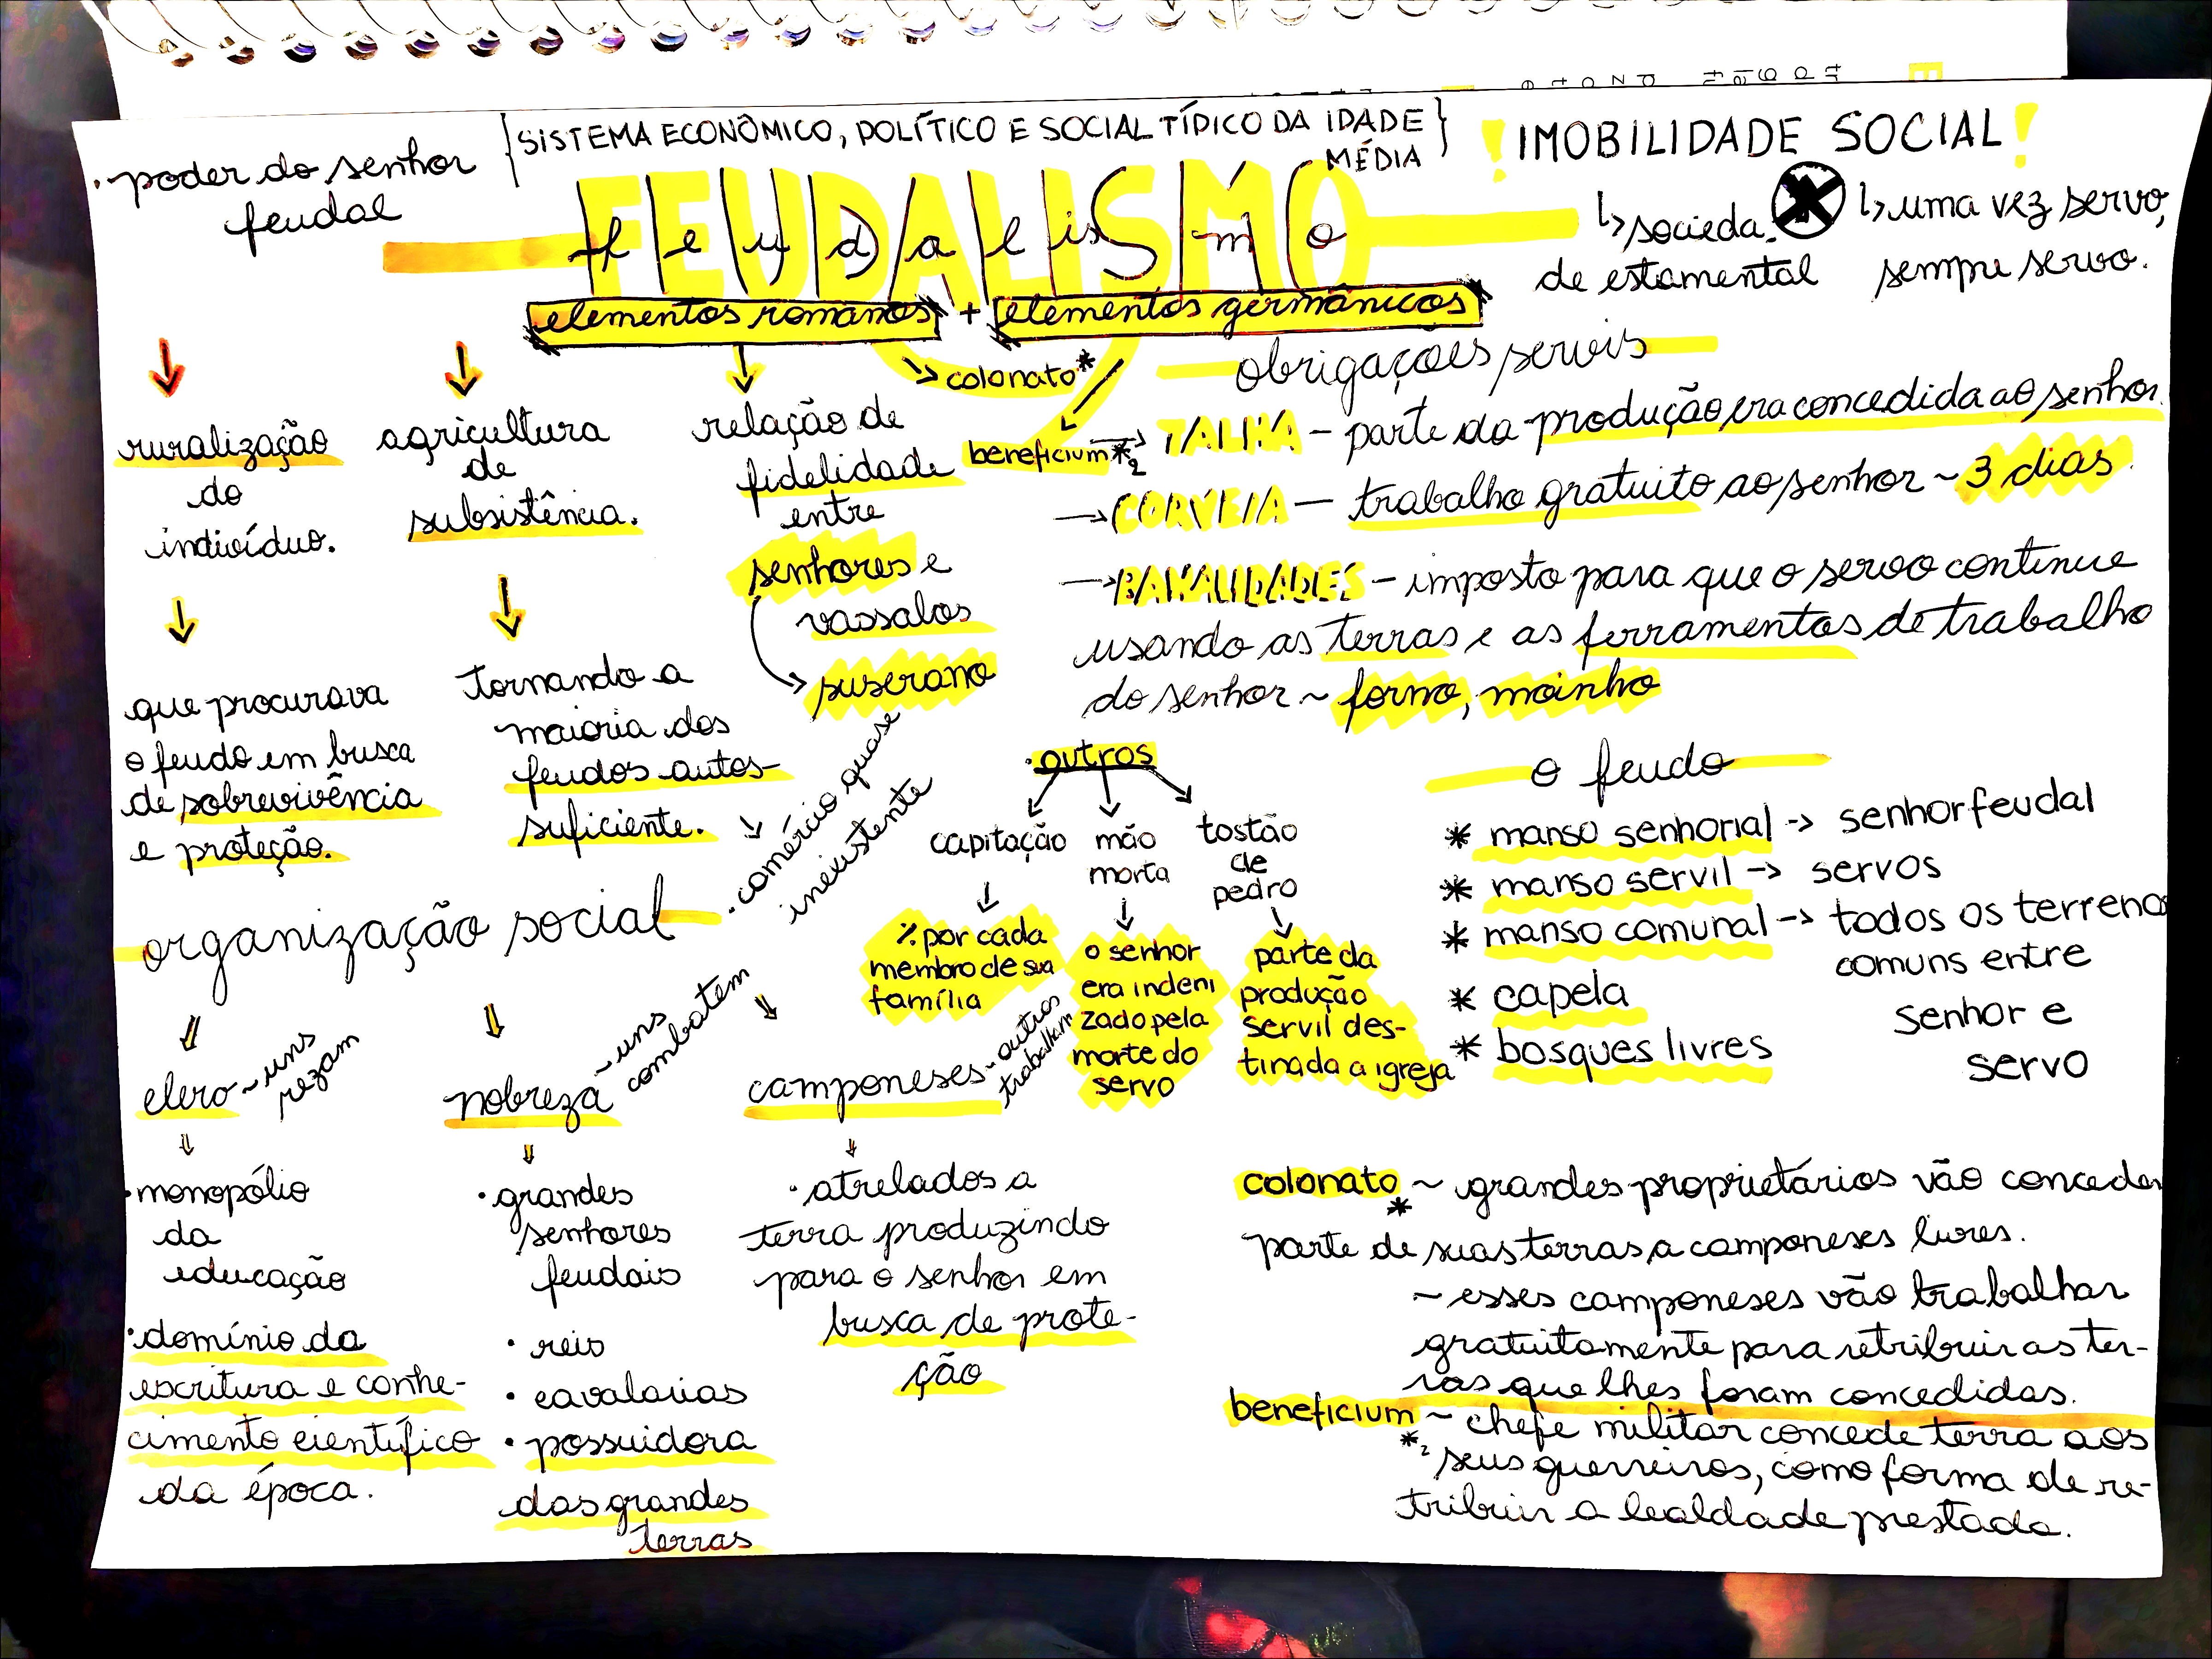 {SISTEMA ECONÔMICO, POLÍTICO E SOCIAL TÍDICO DA IDADE MÉDIA}
feudalismo
FEUDALISMO
elementos romanos + elementos germânicos
↳ colonato*
beneficium*2
• poder do senhor
feudal
! IMOBILIDADE SOCIAL !
↳ socieda-
de estamental
↳ uma vez servo,
sempre servo.
ruralização
do
indivíduo.
que procurava
o feudo em busca
de sobrevivência
e proteção.
agricultura
de
subsistência.
tornando a
maioria dos
feudos autos-
suficiente.
• comércio quase
inexistente
relação de
fidelidade
entre
senhores e
vassalos
suserano
obrigações servis
→ TALHA – parte da produção era concedida ao senhor.
→ CORVEIA – trabalho gratuito ao senhor ~ 3 dias.
→ BANALIDADES – imposto para que o servo continue
usando as terras e as ferramentas de trabalho
do senhor ~ forno, moinho
• outros
capitação
% por cada
membro de sua
família
mão
morta
o senhor
era indeni
zado pela
morte do
servo
tostão
de
pedro
parte da
produção
servil des-
tinada a igreja
o feudo
* manso senhorial -> senhor feudal
* manso servil -> servos
* manso comunal -> todos os terrenos
comuns entre
senhor e
servo
* capela
* bosques livres
organização social
clero ~ uns
rezam
• monopólio
da
educação
• domínio da
escritura e conhe-
cimento científico
da época.
nobreza ~ uns
combatem
• grandes
senhores
feudais
• reis
• cavalarias
• possuidora
das grandes
terras
camponeses ~ outros
trabalham
• atrelados a
terra produzindo
para o senhor em
busca de prote-
ção
colonato* ~ grandes proprietários vão conceder
parte de suas terras a camponeses livres.
~ esses camponeses vão trabalhar
gratuitamente para retribuir as ter-
ras que lhes foram concedidas.
beneficium*2 ~ chefe militar concede terra aos
seus guerreiros, como forma de re-
tribuir a lealdade prestada.